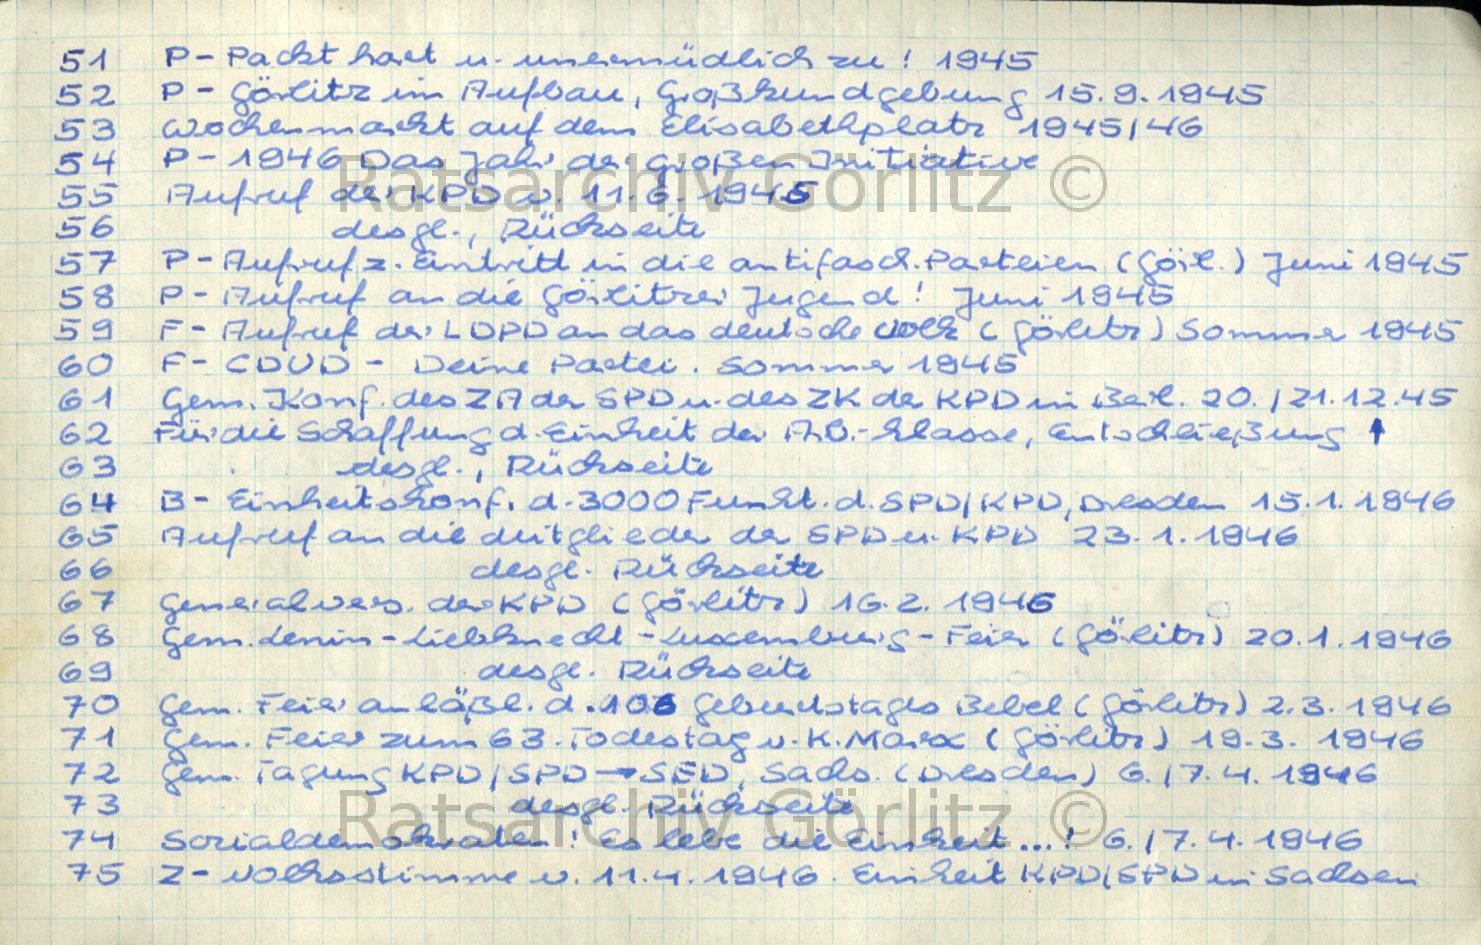 51 P- Packt hart u. unermüdlich zu! 1945
52 P- Görlitz im Aufbau, Großkundgebung 15.9.1945
53 Wochenmarkt auf dem Elisabethplatz 1945/46
54 P- 1946 Das Jahr der großen Initiative
Ratsarchiv Görlitz ©
55 Aufruf der KPD v. 11.6.1945
56 desgl., Rückseite
57 P- Aufruf z. Eintritt in die antifasch. Parteien (Görl.) Juni 1945
58 P- Aufruf an die Görlitzer Jugend! Juni 1945
59 F- Aufruf der LDPD an das deutsche Volk (Görlitz) Sommer 1945
60 F- CDUD - Deine Partei. Sommer 1945
61 Gem. Konf. des ZA der SPD u. des ZK der KPD in Berl. 20./21.12.45
62 Für die Schaffung d. Einheit der Arb.-klasse, Entschließung ↑
63 desgl., Rückseite
64 B- Einheitskonf. d. 3000 Funkt. d. SPD/KPD, Dresden 15.1.1946
65 Aufruf an die Mitglieder der SPD u. KPD 23.1.1946
66 desgl. Rückseite
67 Generalvers. der KPD (Görlitz) 16.2.1946
68 Gem. Lenin-Liebknecht-Luxemburg-Feier (Görlitz) 20.1.1946
69 desgl. Rückseite
70 Gem. Feier anläßl. d. 106 Geburtstages Bebel (Görlitz) 2.3.1946
71 Gem. Feier zum 63. Todestag v. K. Marx (Görlitz) 19.3.1946
72 Gem. Tagung KPD/SPD → SED, Sachs. (Dresden) 6./7.4.1946
73 desgl. Rückseite
Ratsarchiv Görlitz ©
74 Sozialdemokraten! Es lebe die Einheit...! 6./7.4.1946
75 Z- Volksstimme v. 11.4.1946. Einheit KPD/SPD in Sachsen